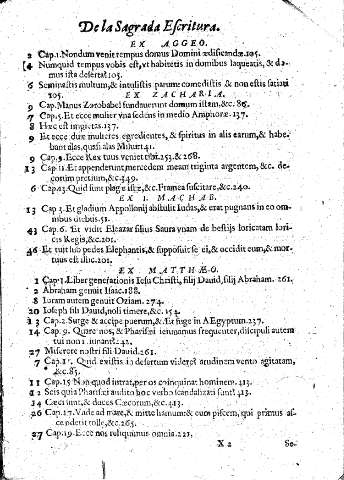 De la Sagrada Escritura.
EX AGGEO.
2 Cap.1. Nondum venit tempus domus Domini ædificandæ.105.
[4 Numquid tempus vobis est, vt habitetis in domibus laqueatis, & do-
mus ista deserta?105.
6 Seminastis multum, & intulistis parum: comedistis & non estis satiati
105.
EX ZACHARIA.
9 Cap. Manus Zorobabel fundauerunt domum istam, &c.86.
7 Cap.5. Et ecce mulier vna sedens in medio Amphoræ.137.
8 Hæc est impietas.137.
9 Et ecce duæ mulieres egredientes, & spiritus in alis earum, & habe-
bant alas, quasi alas Milui.141.
9 Cap.9. Ecce Rex tuus veniet tibi.253.& 268.
13 Cap.11. Et appenderunt mercedem meam triginta argenteis, &c. de-
corum pretium, &c.349.
6 Cap.13. Quid sunt plagæ istæ, &c. Framea suscitare, &c.240.
EX I. MACHAB.
13 Cap.3. Et gladium Appollonij abstulit Iudas, & erat pugnans in eo om-
nibus diebus.51.
43 Cap.6. Et vidit Eleazar filius Saura vnam de bestijs loricatam lori-
cis Regis, &c.201.
46 Et iuit sub pedes Elephantis, & supposuit se ei, & occidit eum, & mor-
tuus est illic.201.
EX MATTHÆO.
1 Cap.1. Liber generationis Iesu Christi, filij Dauid, filij Abraham. 261.
2 Abraham genuit Isaac.188.
8 Ioram autem genuit Oziam.274.
20 Ioseph fili Dauid, noli timere, &c.154.
13 Cap.2. Surge & accipe puerum, & Et fuge in AEgyptum.237.
14 Cap.9. Quare nos, & Pharisæi ieiunamus frequenter, discipuli autem
tui non ieiunant?42.
27 Miserere nostri fili Dauid.261.
7 Cap.11. Quid existis in desertum videre? arudinem vento agitatam,
&c.85.
11 Cap.15 Non quod intrat per os coinquinat hominem.413.
12 Scis quia Pharisæi audito hoc verbo scandalizati sunt?413.
14 Cæci sunt, & duces Cæcorum, &c.413.
26 Cap.17. Vade ad mare, & mitte hamum & eum piscem, qui primus as-
cenderit tolle, &c.265.
27 Cap.19. Ecce nos reliquimus omnia.221.
X 2 Se-